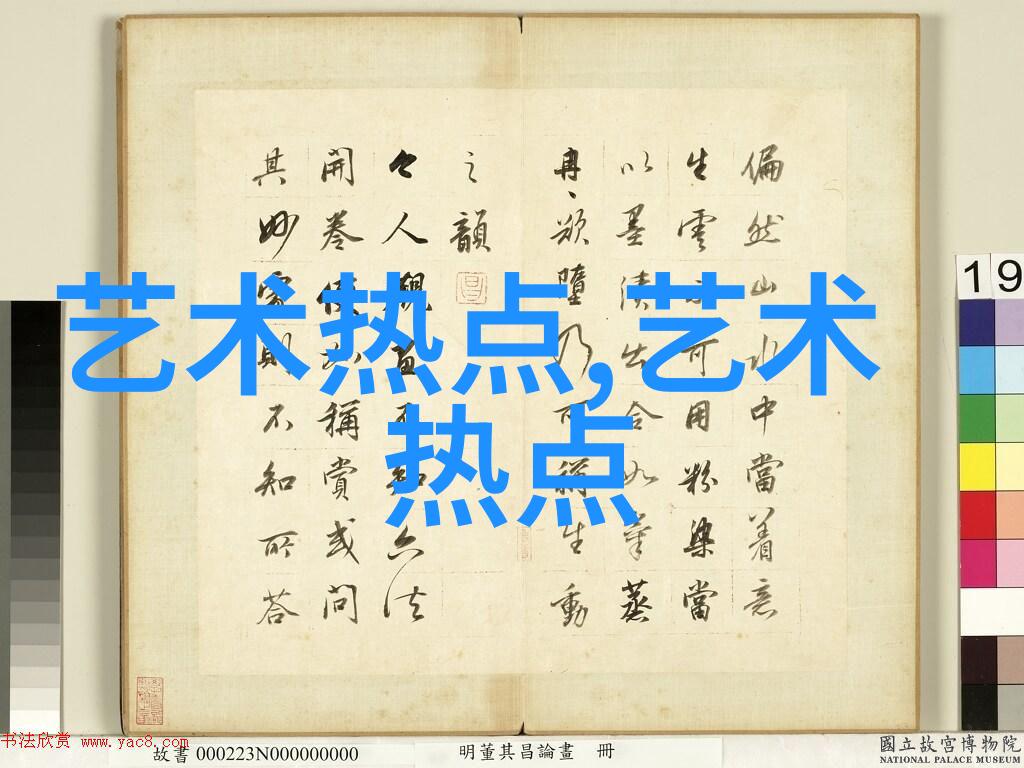 艺术热点,艺术
热点
偏然山水中當着意
生雲不可用粉染當
以墨漬出合如氣蒸
冉、欲墮乃可稱生動
之韻
昌
今人觀畫不知六法
開卷便加稱賞或問
其妙處則不知所答
19
书法欣赏 www.yac8.com
故書 000223N000000000
明董其昌論畫 冊
國立故宮博物院
NATIONAL PALACE MUSEUM